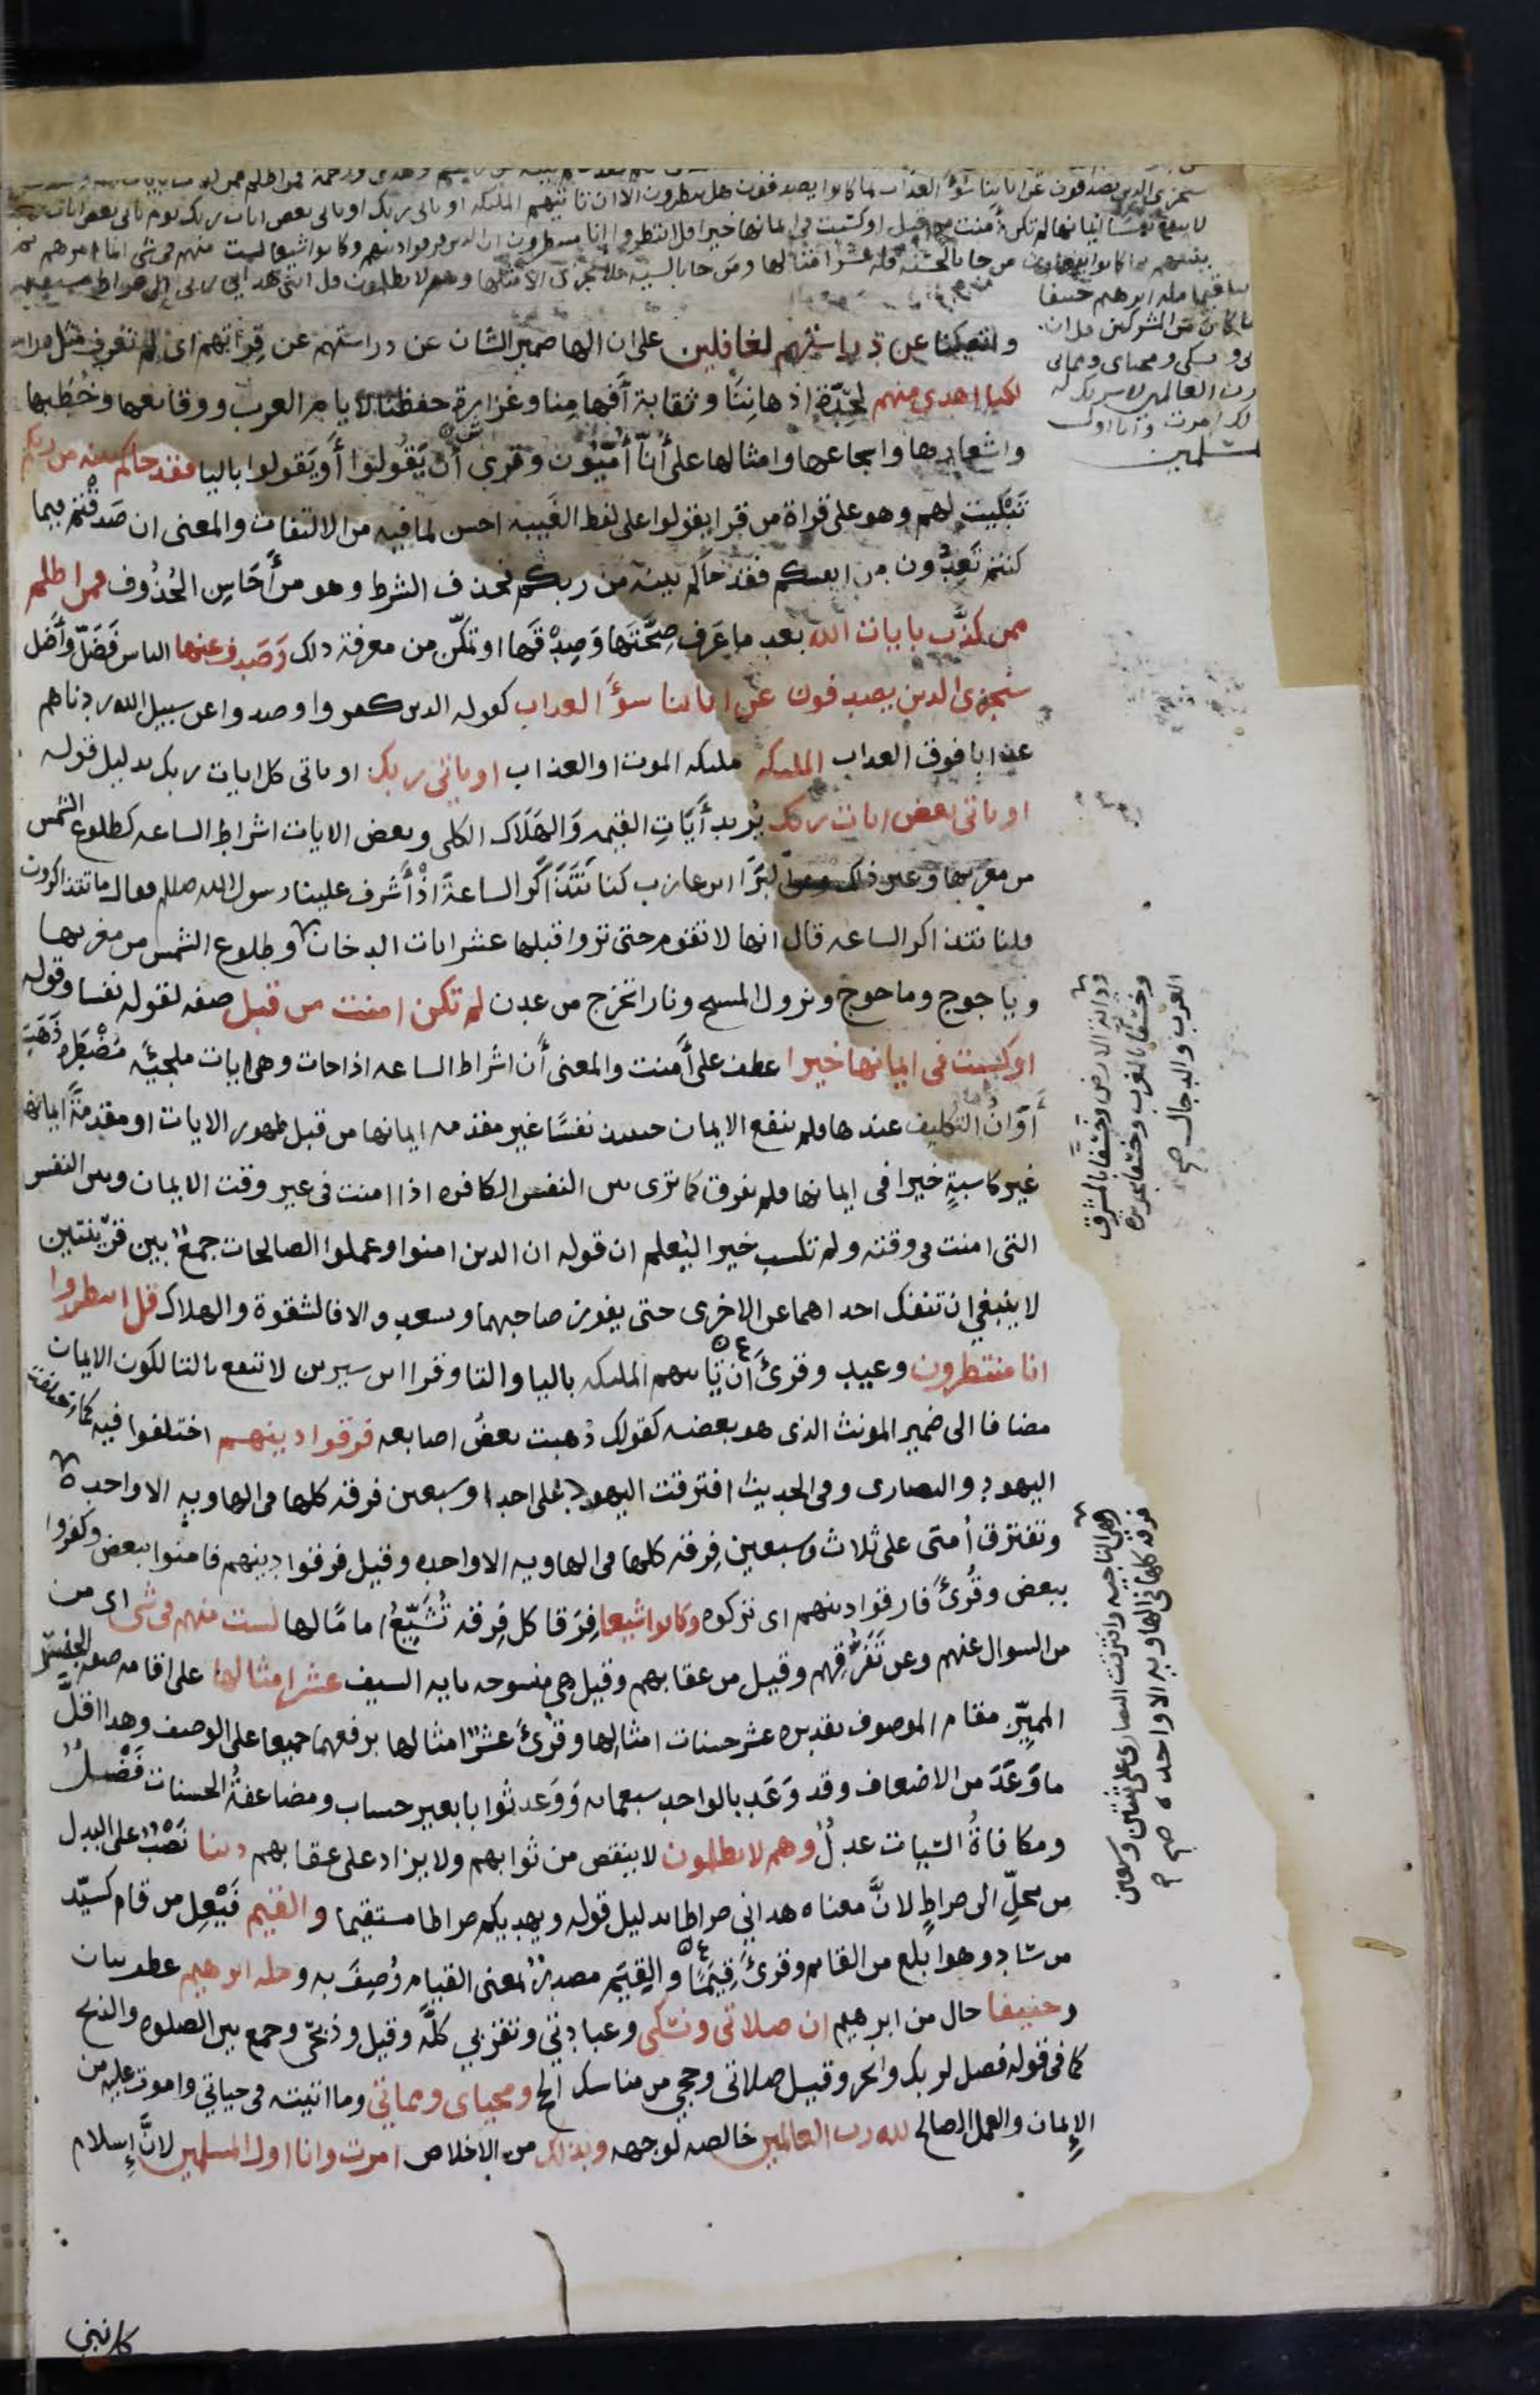 سنجزي الذين يصدفون عن اياتنا سوء العذاب بما كانوا يصدفون هل ينظرون الا ان تاتيهم الملئكة او ياتي ربك او ياتي بعض ايات ربك يوم ياتي بعض ايات ربك
لا ينفع نفسا ايمانها لم تكن امنت من قبل او كسبت في ايمانها خيرا قل انتظروا انا منتظرون ان الذين فرقوا دينهم وكانوا شيعا لست منهم في شي انما امرهم
ينبئهم بما كانوا يفعلون من جا بالحسنه فله عشر امثالها ومن جا بالسيه فلا يجزى الا مثلها وهم لا يظلمون قل انني هداني ربي الى صراط مستقيم
دينا قيما مله ابرهيم حنيفا
وما كان من المشركين قل ان
ونسكي ومحياي ومماتي
رب العالمين لا شريك له
امرت وانا اول
المسلمين
وان كنا عن دراستهم لغافلين على ان الها ضمير الشان عن دراستهم عن قراتهم اى لم نعرف مثل دراستهم
لكنا اهدى منهم لحدة اذهاننا وثقابة أفهامنا وغزارة حفظنا لايام العرب ووقايعها وخطبها
واشعارها واسجاعها وامثالها على أنّا أمّيّون وقرى أن يقولوا أو يقولوا باليا فقد جاكم بينه من ربكم
تبكيت لهم وهو على قراة من قرا يقولوا على لفظ الغيبه احسن لما فيه من الالتفات والمعنى ان صدقتم فيما
كنتم تعدّون من انفسكم فقد جاكم بينه من ربكم فحذف الشرط وهو من أحاسن الحذوف فمن اظلم
ممن كذّب بايات الله بعد ما عرف صحّتها وصدقها او تمكّن من معرفة ذلك وصدف عنها الناس فضلّ وأضل
سنجزى الذين يصدفون عن اياتنا سوء العذاب كقوله الذين كفروا وصدوا عن سبيل الله زدناهم
عذابا فوق العذاب الملئكه ملئكه الموت او العذاب او ياتى ربك او ياتى كل ايات ربك بدليل قوله
او ياتى بعض ايات ربك يريد أيات القيمه والهلاك الكلى وبعض الايات اشراط الساعه كطلوع الشمس
من مغربها وغير ذلك البرا ابن عازب كنا نتذاكر الساعة اذ أشرف علينا رسول الله صلعم فقال ما تتذاكرون
قلنا نتذاكر الساعه قال انها لا تقوم حتى تروا قبلها عشر ايات الدخان وطلوع الشمس من مغربها
وياجوج وماجوج ونزول المسيح ونارا تخرج من عدن لم تكن امنت من قبل صفه لقوله نفسا وقوله
او كسبت فى ايمانها خيرا عطف على أمنت والمعنى أن اشراط الساعه اذا جات وهى ايات ملجئة مضطرة ذهب
أوان التكليف عندها فلم ينفع الايمان حينئذ نفسًا غير مقدمه ايمانها من قبل ظهور الايات او مقدمةً ايمانها
غير كاسبةٍ خيرا فى ايمانها فلم يفرق كما ترى بين النفس الكافره اذا امنت فى غير وقت الايمان وبين النفس
التى امنت فى وقته ولم تكسب خيرا ليعلم ان قوله ان الذين امنوا وعملوا الصالحات جمعٌ بين قرينتين
لا ينبغي ان تنفك احداهما عن الاخرى حتى يفوز صاحبهما ويسعد والا فالشقوة والهلاك قل انتظروا
انا منتظرون وعيد وقرئ أن ياتيهم الملئكه باليا والتا وقرا ابن سيرين لا تنفع بالتا لكون الايمان
مضافا الى ضمير المونث الذى هو بعضه كقولك ذهبت بعضُ اصابعه فرقوا دينهم اختلفوا فيه كما اختلفت
اليهود والنصارى وفى الحديث افترقت اليهود على احدى وسبعين فرقه كلها فى الهاويه الا واحده
وتفترق أمتى على ثلاث وسبعين فرقه كلها فى الهاويه الا واحده وقيل فرقوا دينهم فامنوا ببعض وكفروا
ببعض وقُرئ فارقوا دينهم اى تركوه وكانوا شيعا فِرَقا كل فِرقه تُشَيّعُ اماما لها لست منهم فى شى اى من
من السوال عنهم وعن تَفَرّقهم وقيل من عقابهم وقيل هى منسوخه باية السيف عشر امثالها على اقامه صفه الجنس
المميّز مقام الموصوف تقديره عشر حسنات امثالها وقرئ عشرٌ امثالها برفعهما جميعا على الوصف وهذا اقلّ
ما وَعَدَ من الاضعاف وقد وَعَد بالواحد سبعمايه وَوَعد ثوابا بغير حساب ومضاعفةُ الحسنات فَضْلٌ
ومكافاةُ السّيات عدلٌ وهم لا يظلمون لا ينقص من ثوابهم ولا يزاد على عقابهم دينا نَصْبٌ على البدل
من محلّ الى صراطٍ لانّ معناه هداني صراطا بدليل قوله ويهديكم صراطا مستقيما والقيم فَيْعِل من قام كسيّد
من ساد وهو ابلغ من القايم وقرئ قِيَمًا والقِيَم مصدرٌ بمعنى القيام وُصِفَ به ومله ابرهيم عطف بيان
وحنيفا حال من ابرهيم ان صلاتى ونسكى وعبادتي وتقربي كلّه وقيل وذبحّى وجمع بين الصلوه والذبح
كما فى قوله فصل لربك وانحر وقيل صلاتى وحجي من مناسك الحج ومحياى ومماتى وما اتيته فى حياتي واموت عليه من
الإيمان والعمل الصالح لله رب العالمين خالصه لوجهه وبذلك من الاخلاص امرت وانا اول المسلمين لانّ إسلام
ودابة الارض وخسفًا بالمشرق
وخسفًا بالمغرب وخسفا بجزيره
العرب والدجال صح
وهى الناجيه وافترقت النصارى على ثنتين وسبعين
فرقه كلها فى الهاويه الا واحده صح
كل نبي